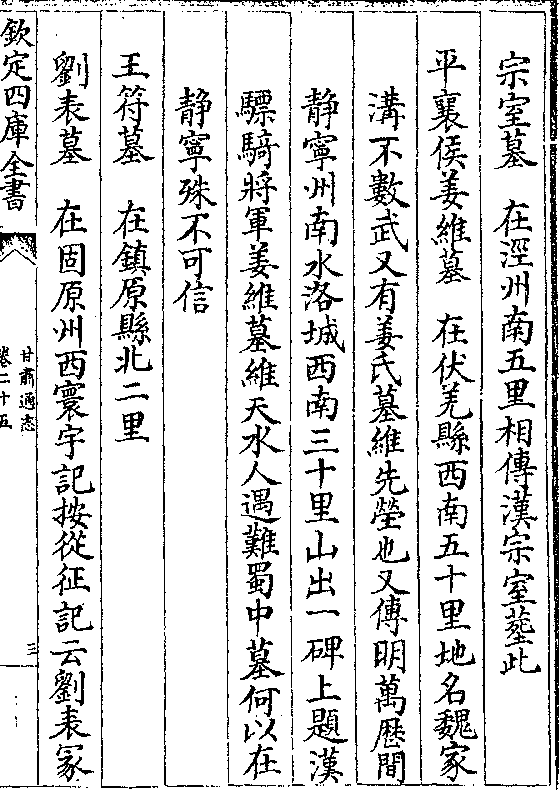 宗室墓　在涇州南五里相傳漢宗室塟此
平襄侯姜維墓　在伏羌縣西南五十里地名魏家
溝不數武又有姜氏墓維先塋也又傳明萬歷間
靜寧州南水洛城西南三十里山出一碑上題漢
驃騎將軍姜維墓維天水人遇難蜀中墓何以在
靜寧殊不可信
王符墓　在鎮原縣北二里
劉表墓　在固原州西寰宇記按從征記云劉表冢
欽定四庫全書
甘肅通志
卷二十五
三